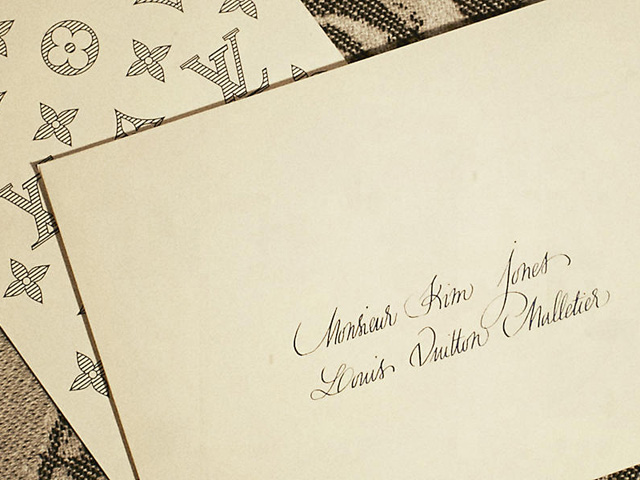 LV
LV
Monsieur Kim Jones
Louis Vuitton Malletier